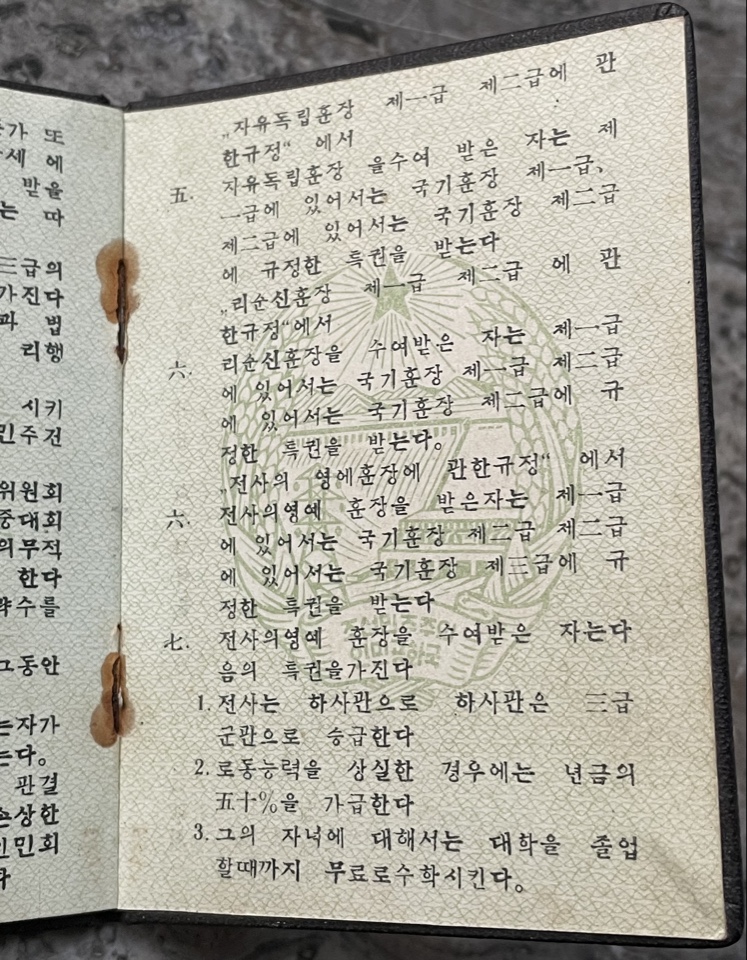 가 또
세 에
받을
는 따
三급의
가진다
과 법
리행
시키
민주건
위원회
중대회
의무적
한다
략수를
그동안
는자가
는다。
판결
손상한
인민회
„자유독립훈장 제一급 제二급에 관
한규정“ 에서
五. 자유독립훈장 을수여 받은 자는 제
一급에 있어서는 국기훈장 제一급、
제二급에 있어서는 국기훈장 제二급
에 규정한 특권을 받는다
„리순신훈장 제一급 제二급 에 관
한규정“에서
六. 리순신훈장을 수여받은 자는 제一급
에 있어서는 국기훈장 제一급 제二급
에 있어서는 국기훈장 제二급에 규
정한 특권을 받는다。
„전사의 영에훈장에 관한규정“ 에서
六. 전사의영예 훈장을 받은자는 제一급
에 있어서는 국기훈장 제二급 제二급
에 있어서는 국기훈장 제三급에 규
정한 특권을 받는다
七. 전사의영예 훈장을 수여받은 자는다
음의 특권을가진다
1. 전사는 하사관으로 하사관은 三급
군관으로 승급한다
2. 로동능력을 상실한 경우에는 년금의
五十%을 가급한다
3. 그의 자녀에 대해서는 대학을 졸업
할때까지 무료로수학시킨다。